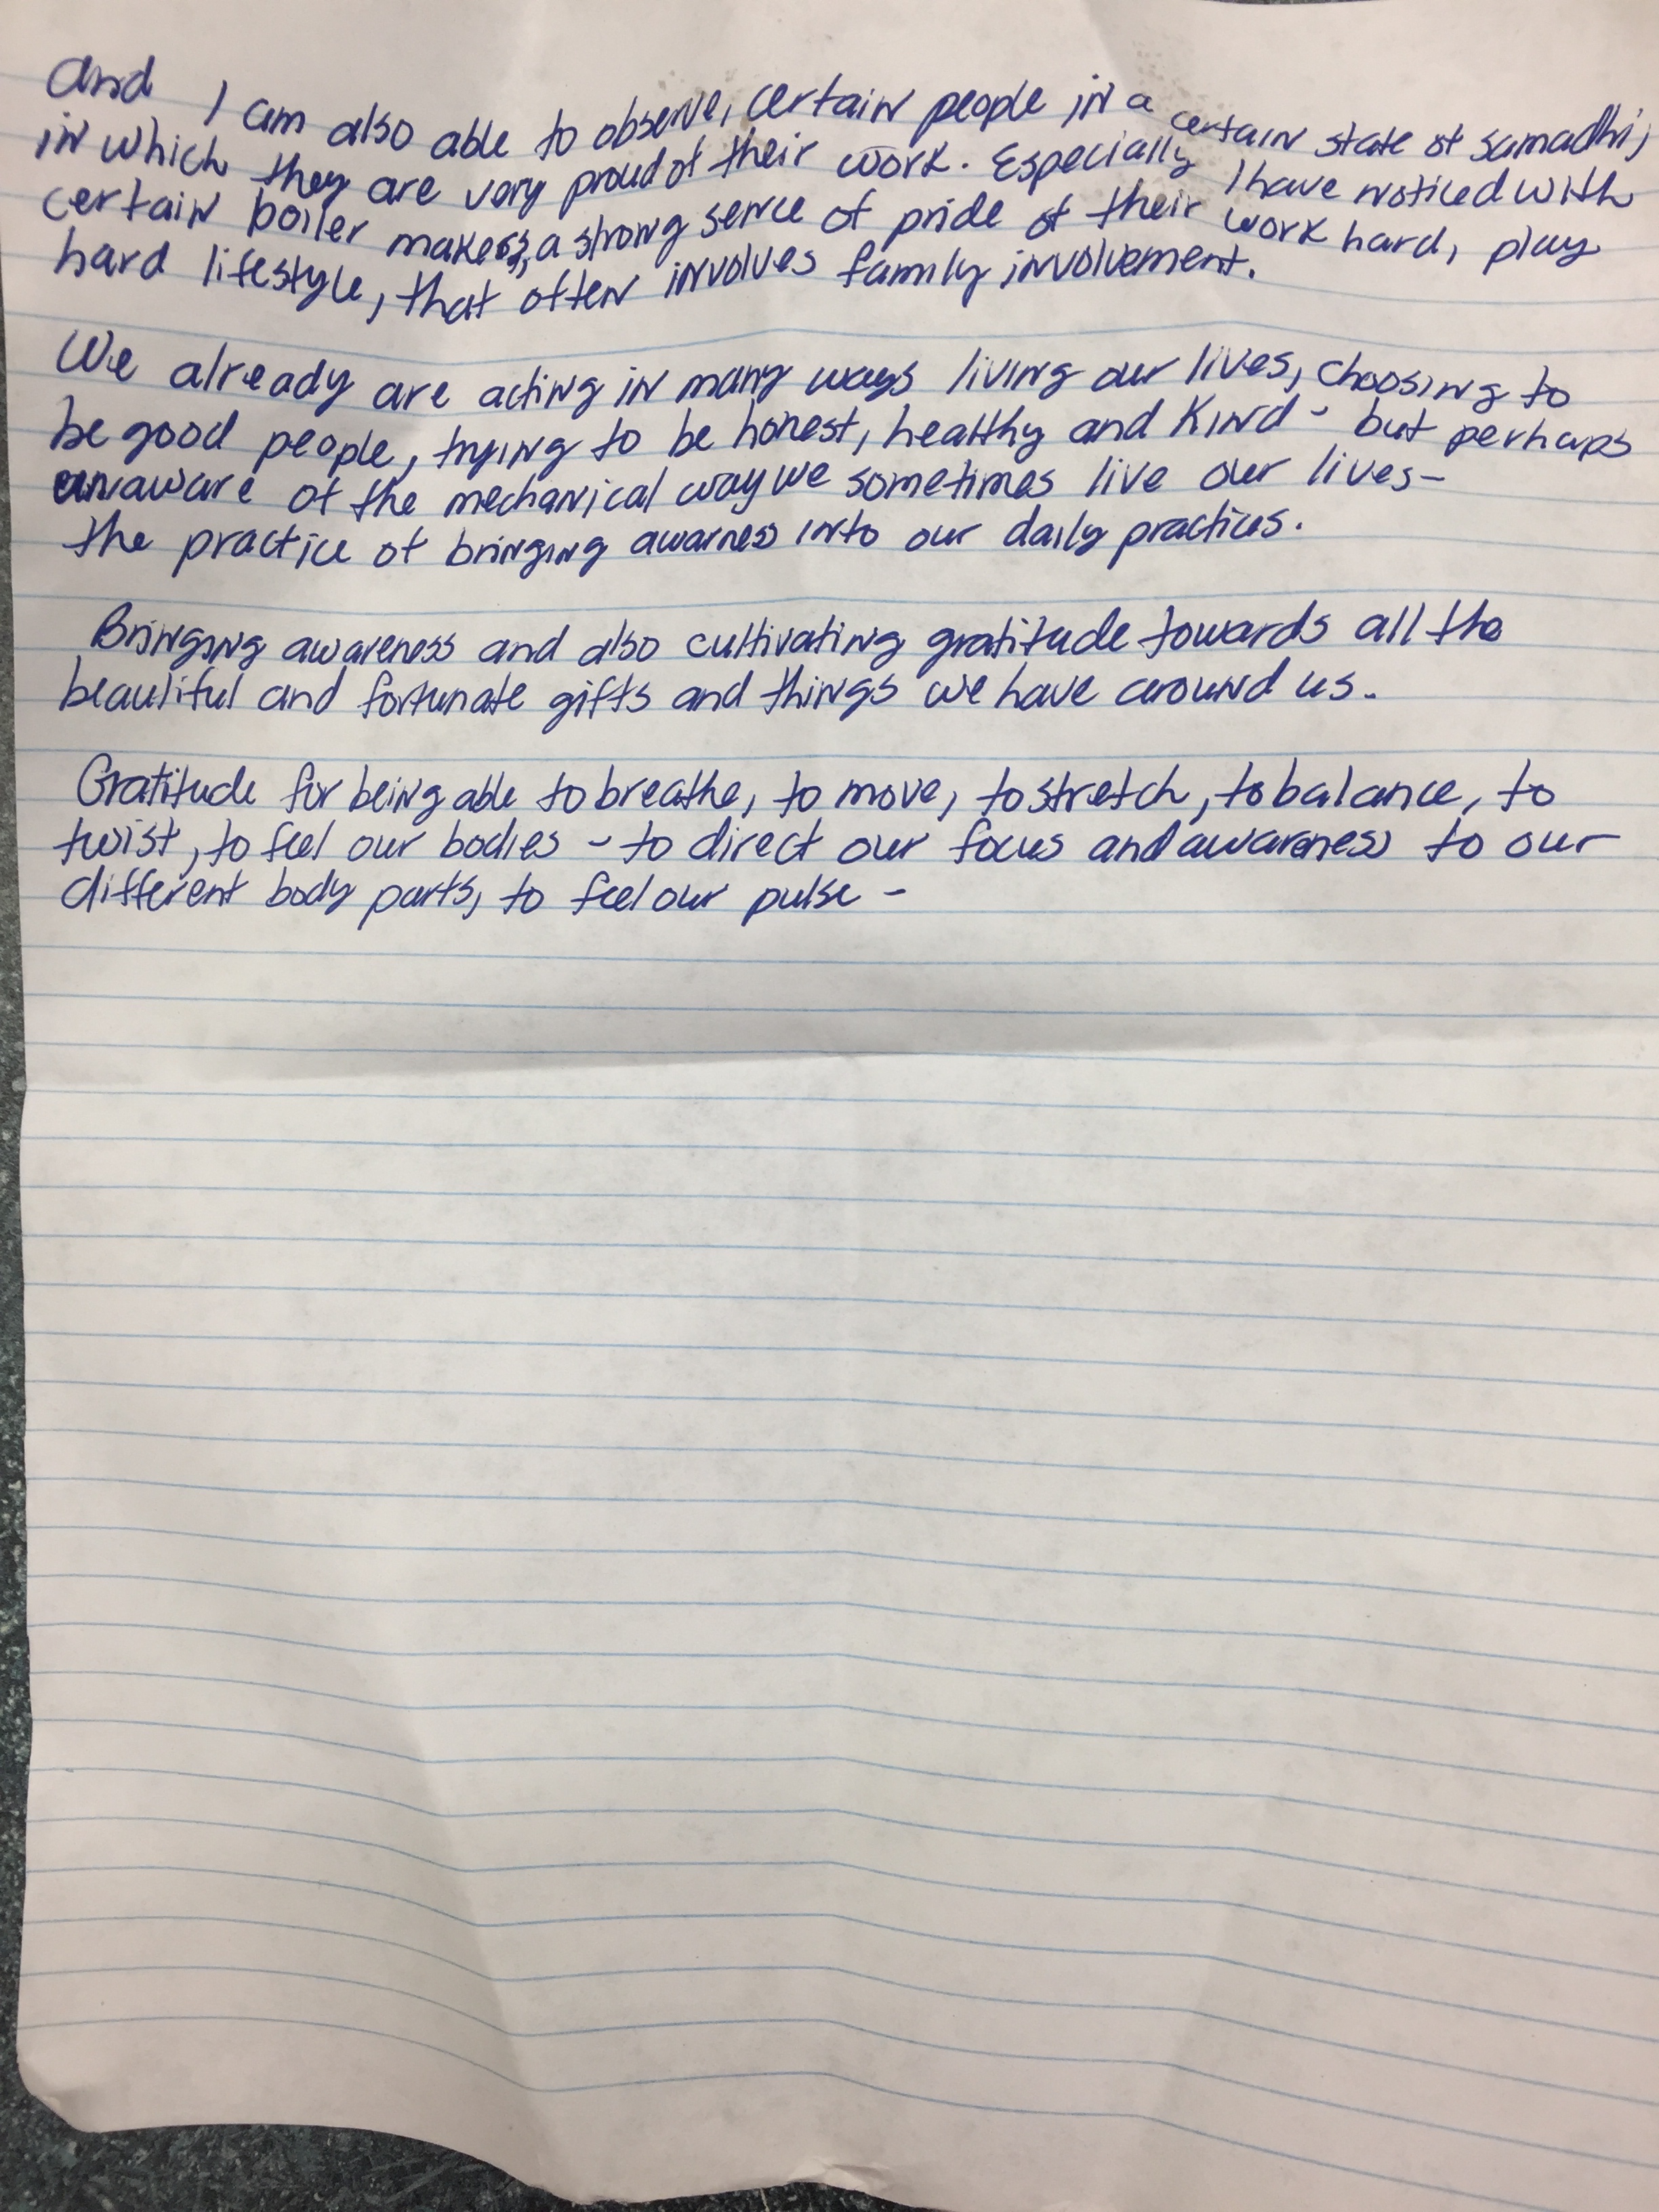 And I am also able to observe, certain people in a certain state of samadhi,
in which they are very proud of their work. Especially I have noticed with
certain boiler makers, a strong sence of pride of their work hard, play
hard lifestyle, that often involves family involvement.
We already are acting in many ways living our lives, choosing to
be good people, trying to be honest, healthy and kind - but perhaps
unaware of the mechanical way we sometimes live our lives-
the practice of bringing awarness into our daily practices.
Bringing awareness and also cultivating gratitude towards all the
beautiful and fortunate gifts and things we have around us.
Gratitude for being able to breathe, to move, to stretch, to balance, to
twist, to feel our bodies - to direct our focus and awareness to our
different body parts, to feel our pulse -